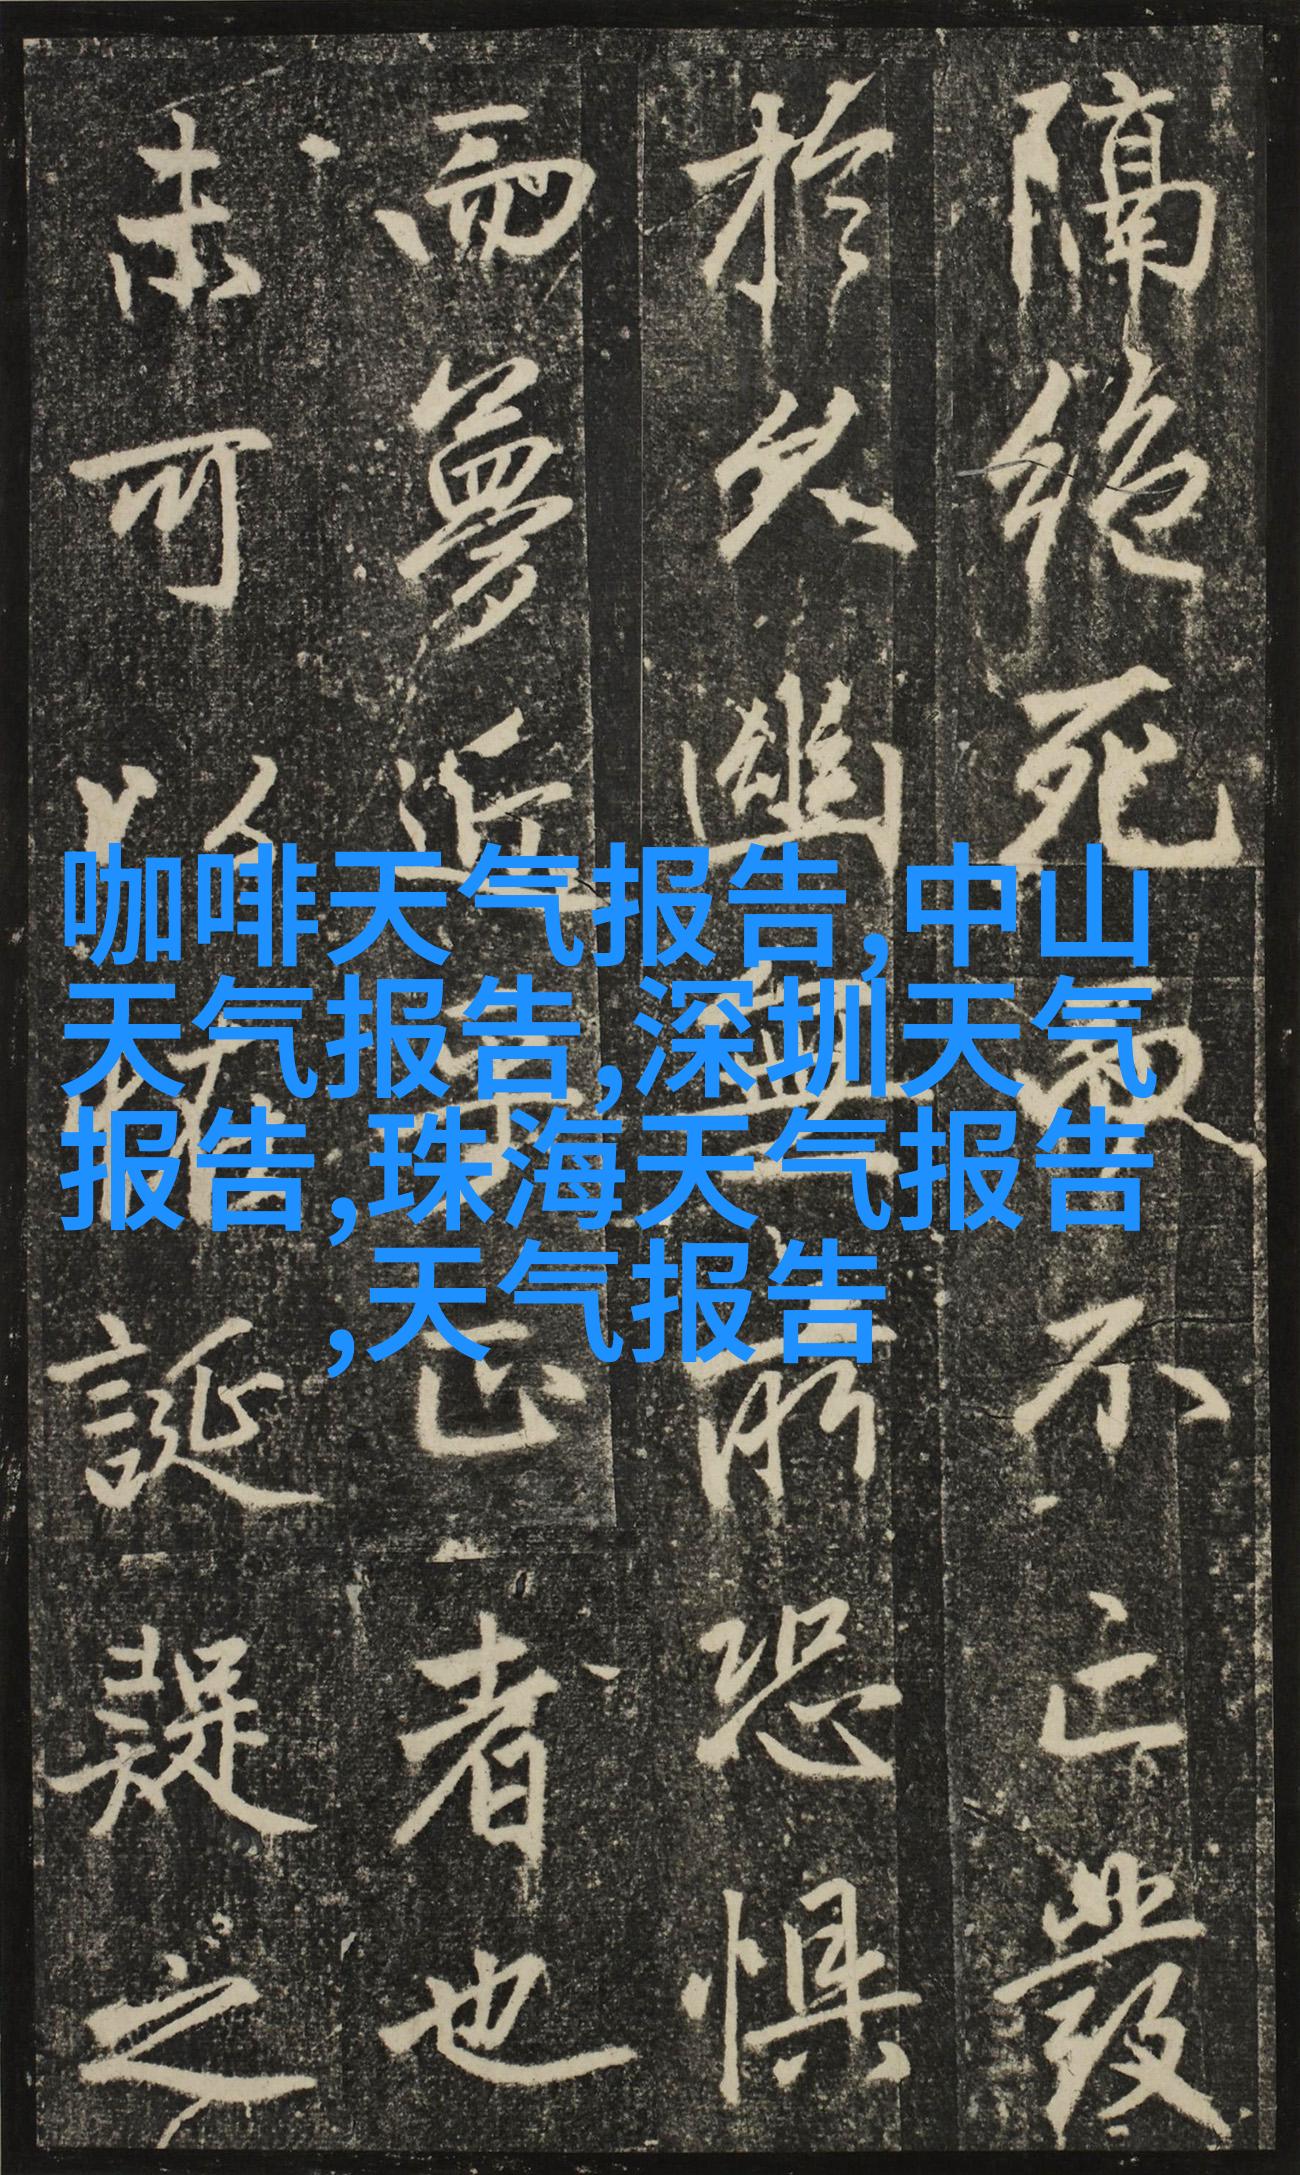 隔絶死不亡發
於久幽無所恐懼
而夢近乎正者也
未可以怪誕疑之
咖啡天气报告,中山
天气报告,深圳天气
报告,珠海天气报告
,天气报告